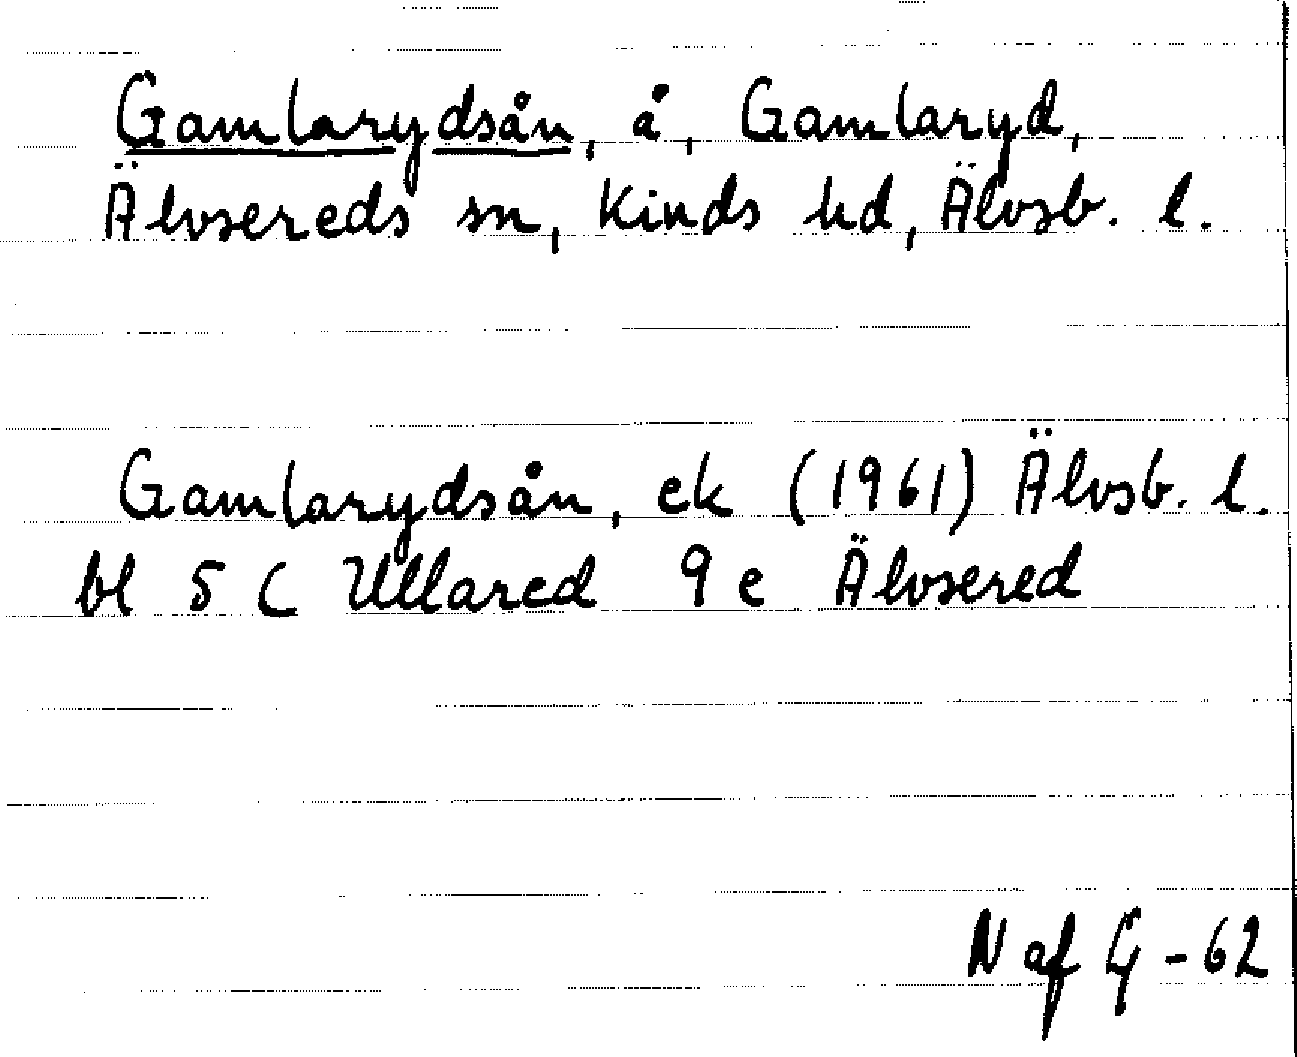 Gamlarydsån, å, Gamlaryd,
Älvsereds sn, Kinds hd, Älvsb. l.
Gamlarydsån, ek (1961) Älvsb. l.
bl 5 C Ullared 9 e Älvsered
N af G - 62